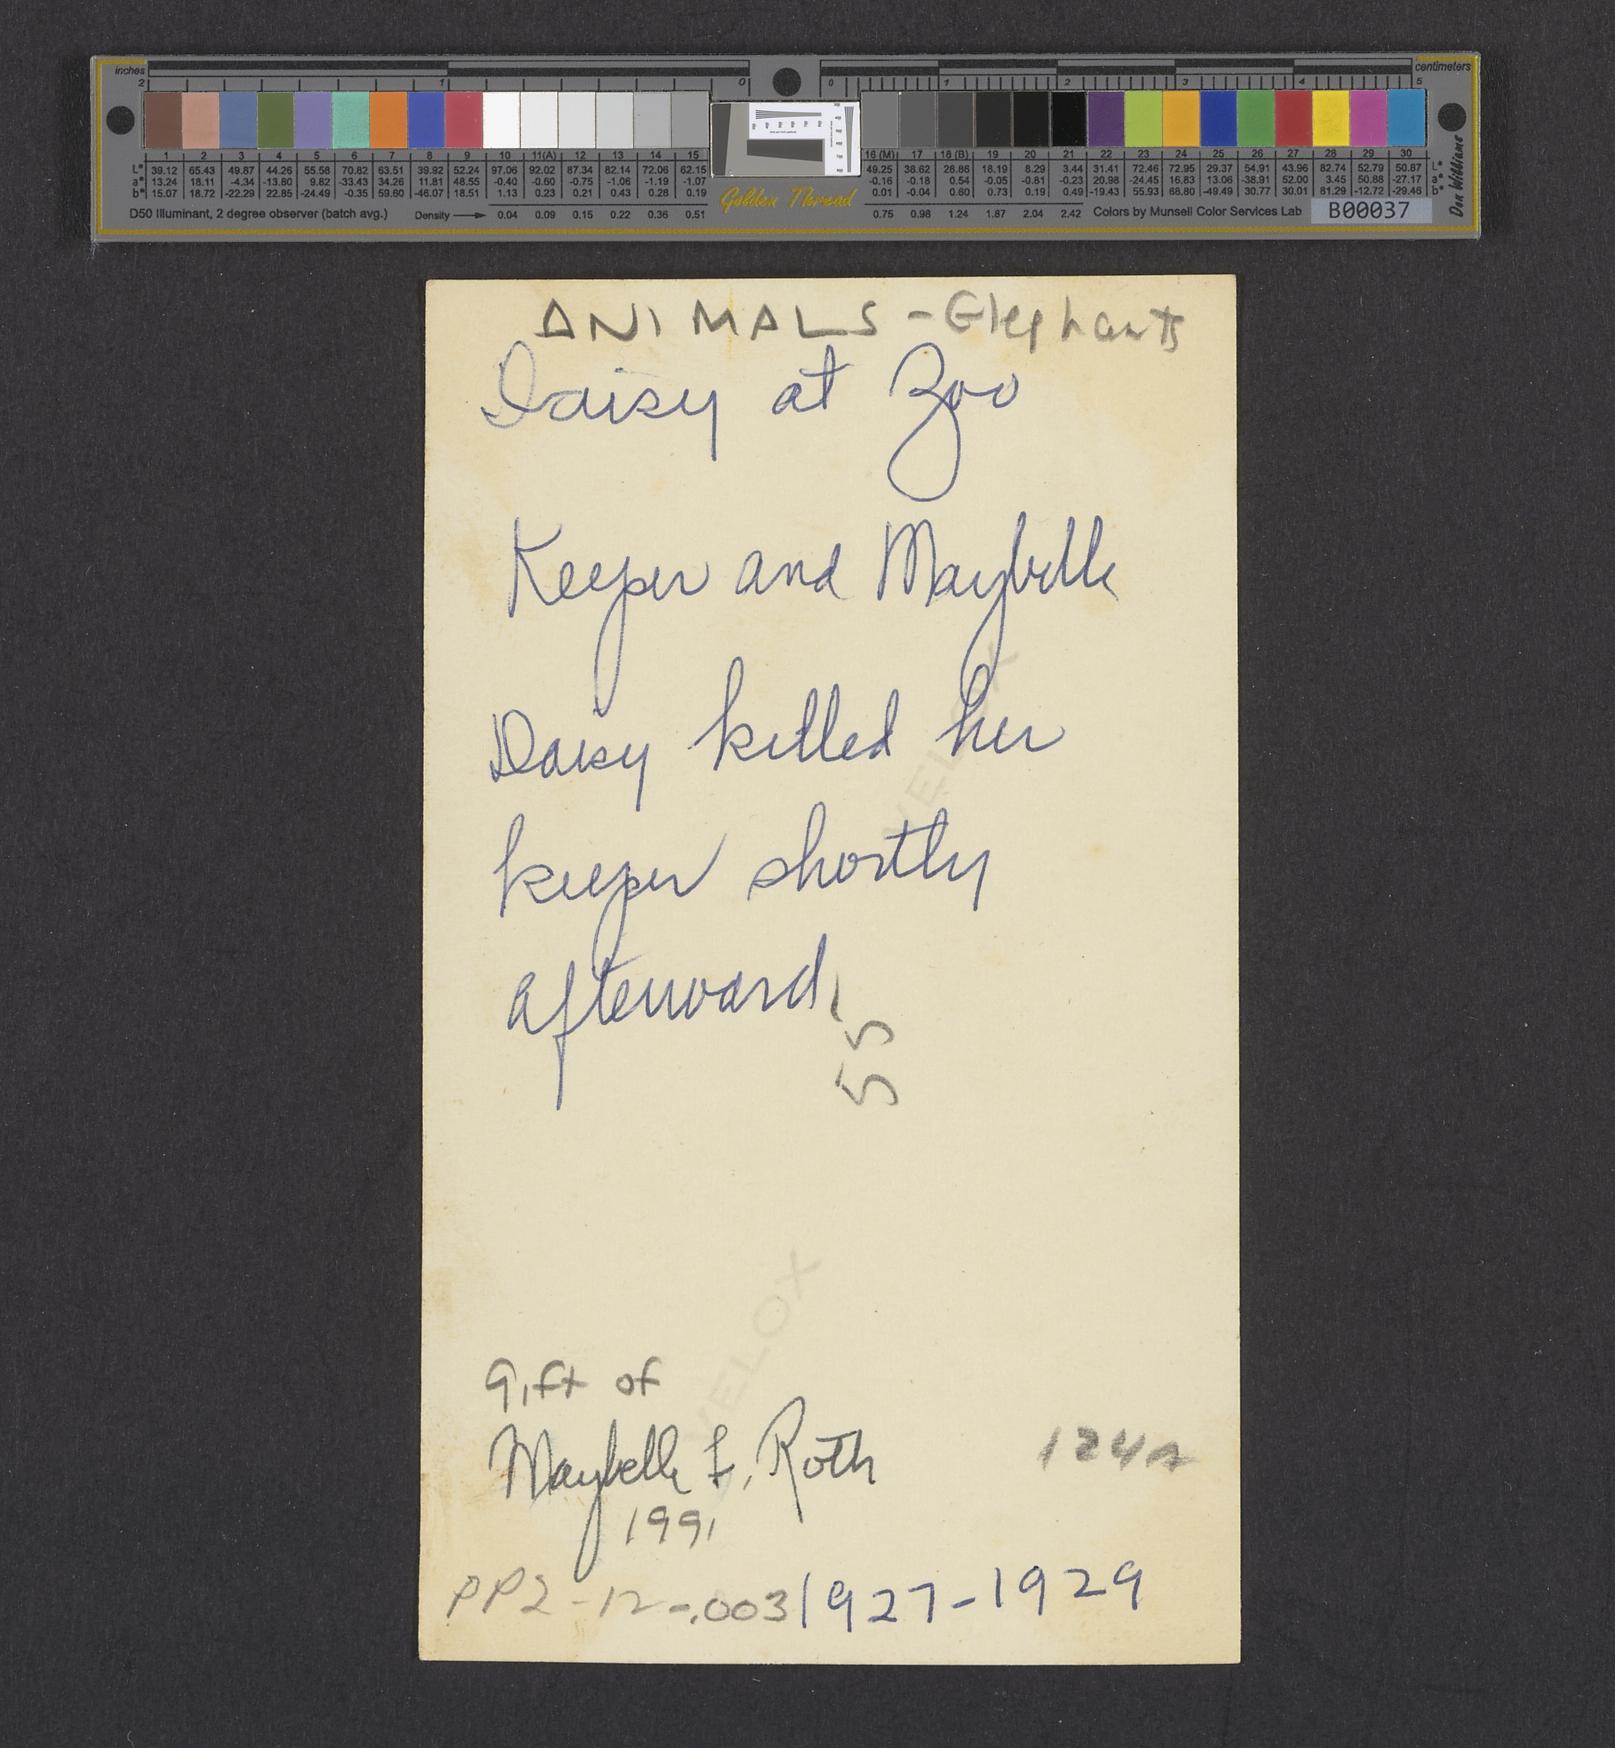 inches
centimeters
2 1 0 0 1 2 3 4 5
1 2 3 4 5 6 7 8 9 10 11(A) 12 13 14 15 16 (M) 17 18 (B) 19 20 21 22 23 24 25 26 27 28 29 30
L* 39.12 65.43 49.87 44.26 55.58 70.82 63.51 39.92 52.24 97.06 92.02 87.34 82.14 72.06 62.15 49.25 38.62 28.86 18.19 8.29 3.44 31.41 72.46 72.95 29.37 54.91 43.96 82.74 52.79 50.87 L*
a* 13.24 18.11 -4.34 -13.80 9.82 -33.43 34.26 11.81 48.55 -0.40 -0.60 -0.75 -1.06 -1.19 -1.07 -0.16 -0.18 0.54 -0.05 -0.81 -0.23 20.98 -24.45 16.83 13.06 -38.91 52.00 3.45 50.88 -27.17 a*
b* 15.07 18.72 -22.29 22.85 -24.49 -0.35 59.60 -46.07 18.51 1.13 0.23 0.21 0.43 0.28 0.19 0.01 -0.04 0.60 0.73 0.19 0.49 -19.43 55.93 68.80 -49.49 30.77 30.01 81.29 -12.72 -29.46 b*
D50 Illuminant, 2 degree observer (batch avg.) Density 0.04 0.09 0.15 0.22 0.36 0.51 Golden Thread 0.75 0.98 1.24 1.87 2.04 2.42 Colors by Munsell Color Services Lab B00037
Don Williams
ANIMALS - Elephants
Daisy at Zoo
Keeper and Maybelle
Daisy killed her
keeper shortly
afterward.
55
VELOX
VELOX
Gift of
Maybelle F. Roth
1991
124A
PP2-12-.003 1927-1929